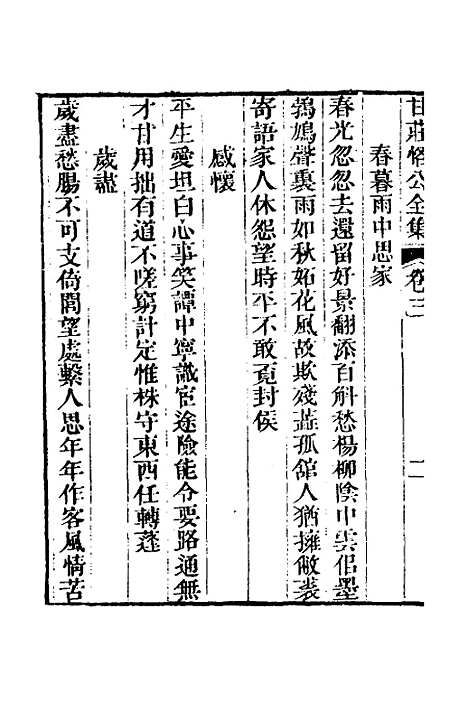 甘莊恪公全集 卷三 二
春暮雨中思家
春光忽忽去還留好景翻添百斛愁楊柳陰中雲佀墨
鵓鳩聲裏雨如秋妬花風故欺殘蕋孤舘人猶擁敝裘
寄語家人休怨望時平不敢覓封侯
感懷
平生愛坦白心事笑譚中寧識宦途險能令要路通無
才甘用拙有道不嗟窮計定惟株守東西任轉蓬
歲盡
歲盡愁腸不可支倚閭望處繫人思年年作客風情苦